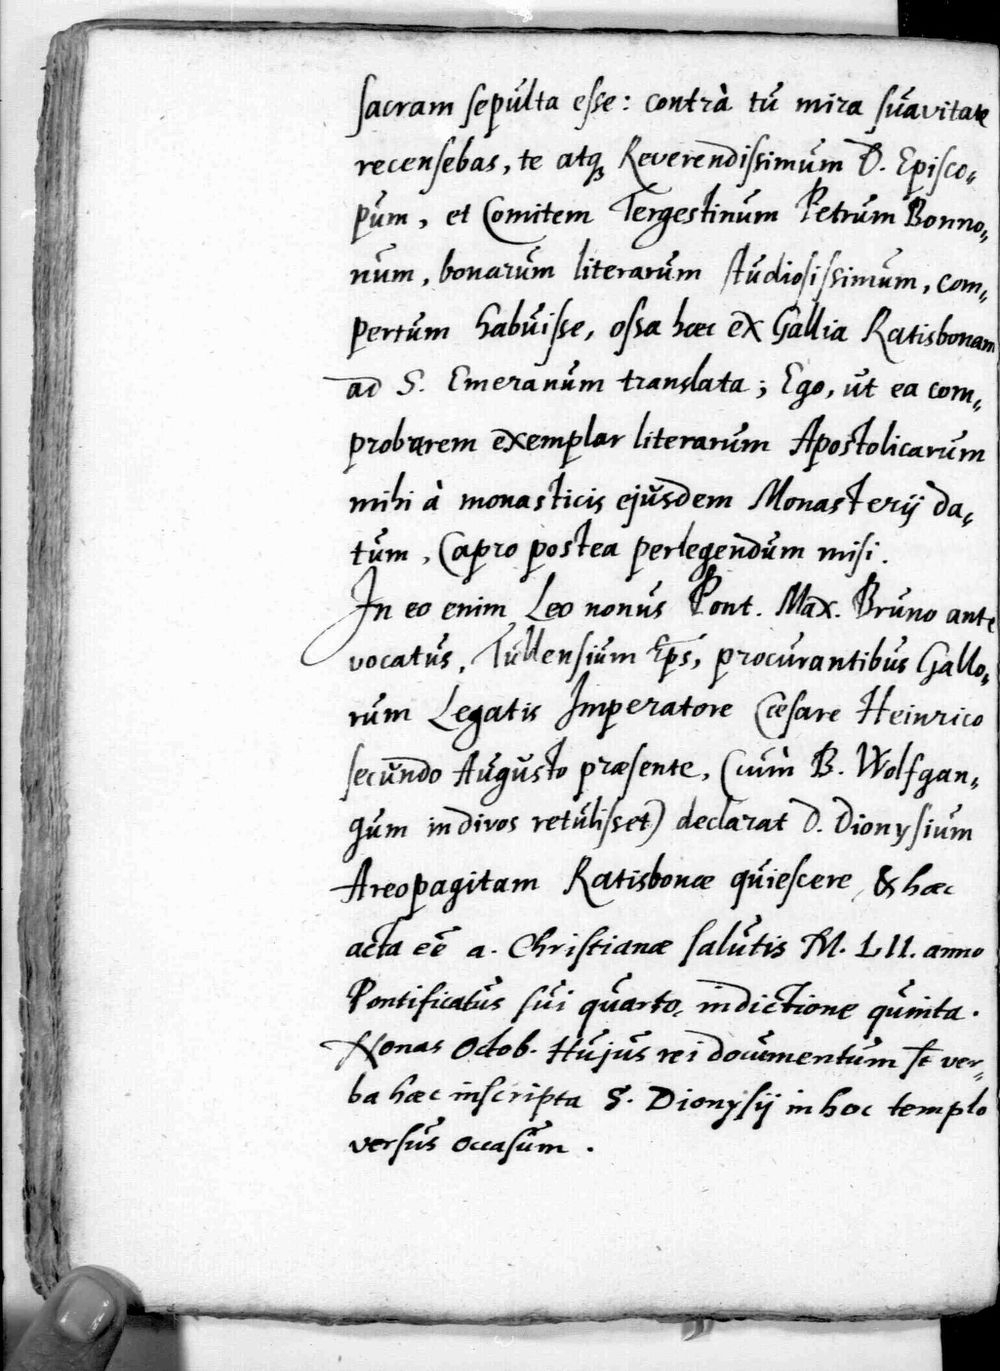 sacram sepulta esse: contrà tu mira suavitate
recensebas, te atq; Reverendissimum D. Episco-
pum, et Comitem Tergestinum Petrum Bonno-
num, bonarum literarum studiosissimum, com-
pertum habuisse, ossa hæc ex Gallia Ratisbonam
ad S. Emeranum translata; Ego, ut ea com-
probarem exemplar literarum Apostolicarum
mihi à monasticis ejusdem Monasterij da-
tum, Capro postea perlegendum misi.
In eo enim Leo nonus Pont. Max. Bruno ante
vocatus, Tullensium Eps, procurantibus Gallo-
rum Legatis Imperatore Cæsare Heinrico
secundo Augusto præsente, (cum B. Wolfgan-
gum in divos retulisset) declarat D. Dionysium
Areopagitam Ratisbonæ quiescere, & hæc
acta eē a. Christianæ salutis M. LII. anno
Pontificatus sui quarto, indictione quinta.
Nonas Octob. Hujus rei documentum st ver-
ba hæc inscripta S. Dionysij in hoc templo
versus occasum.